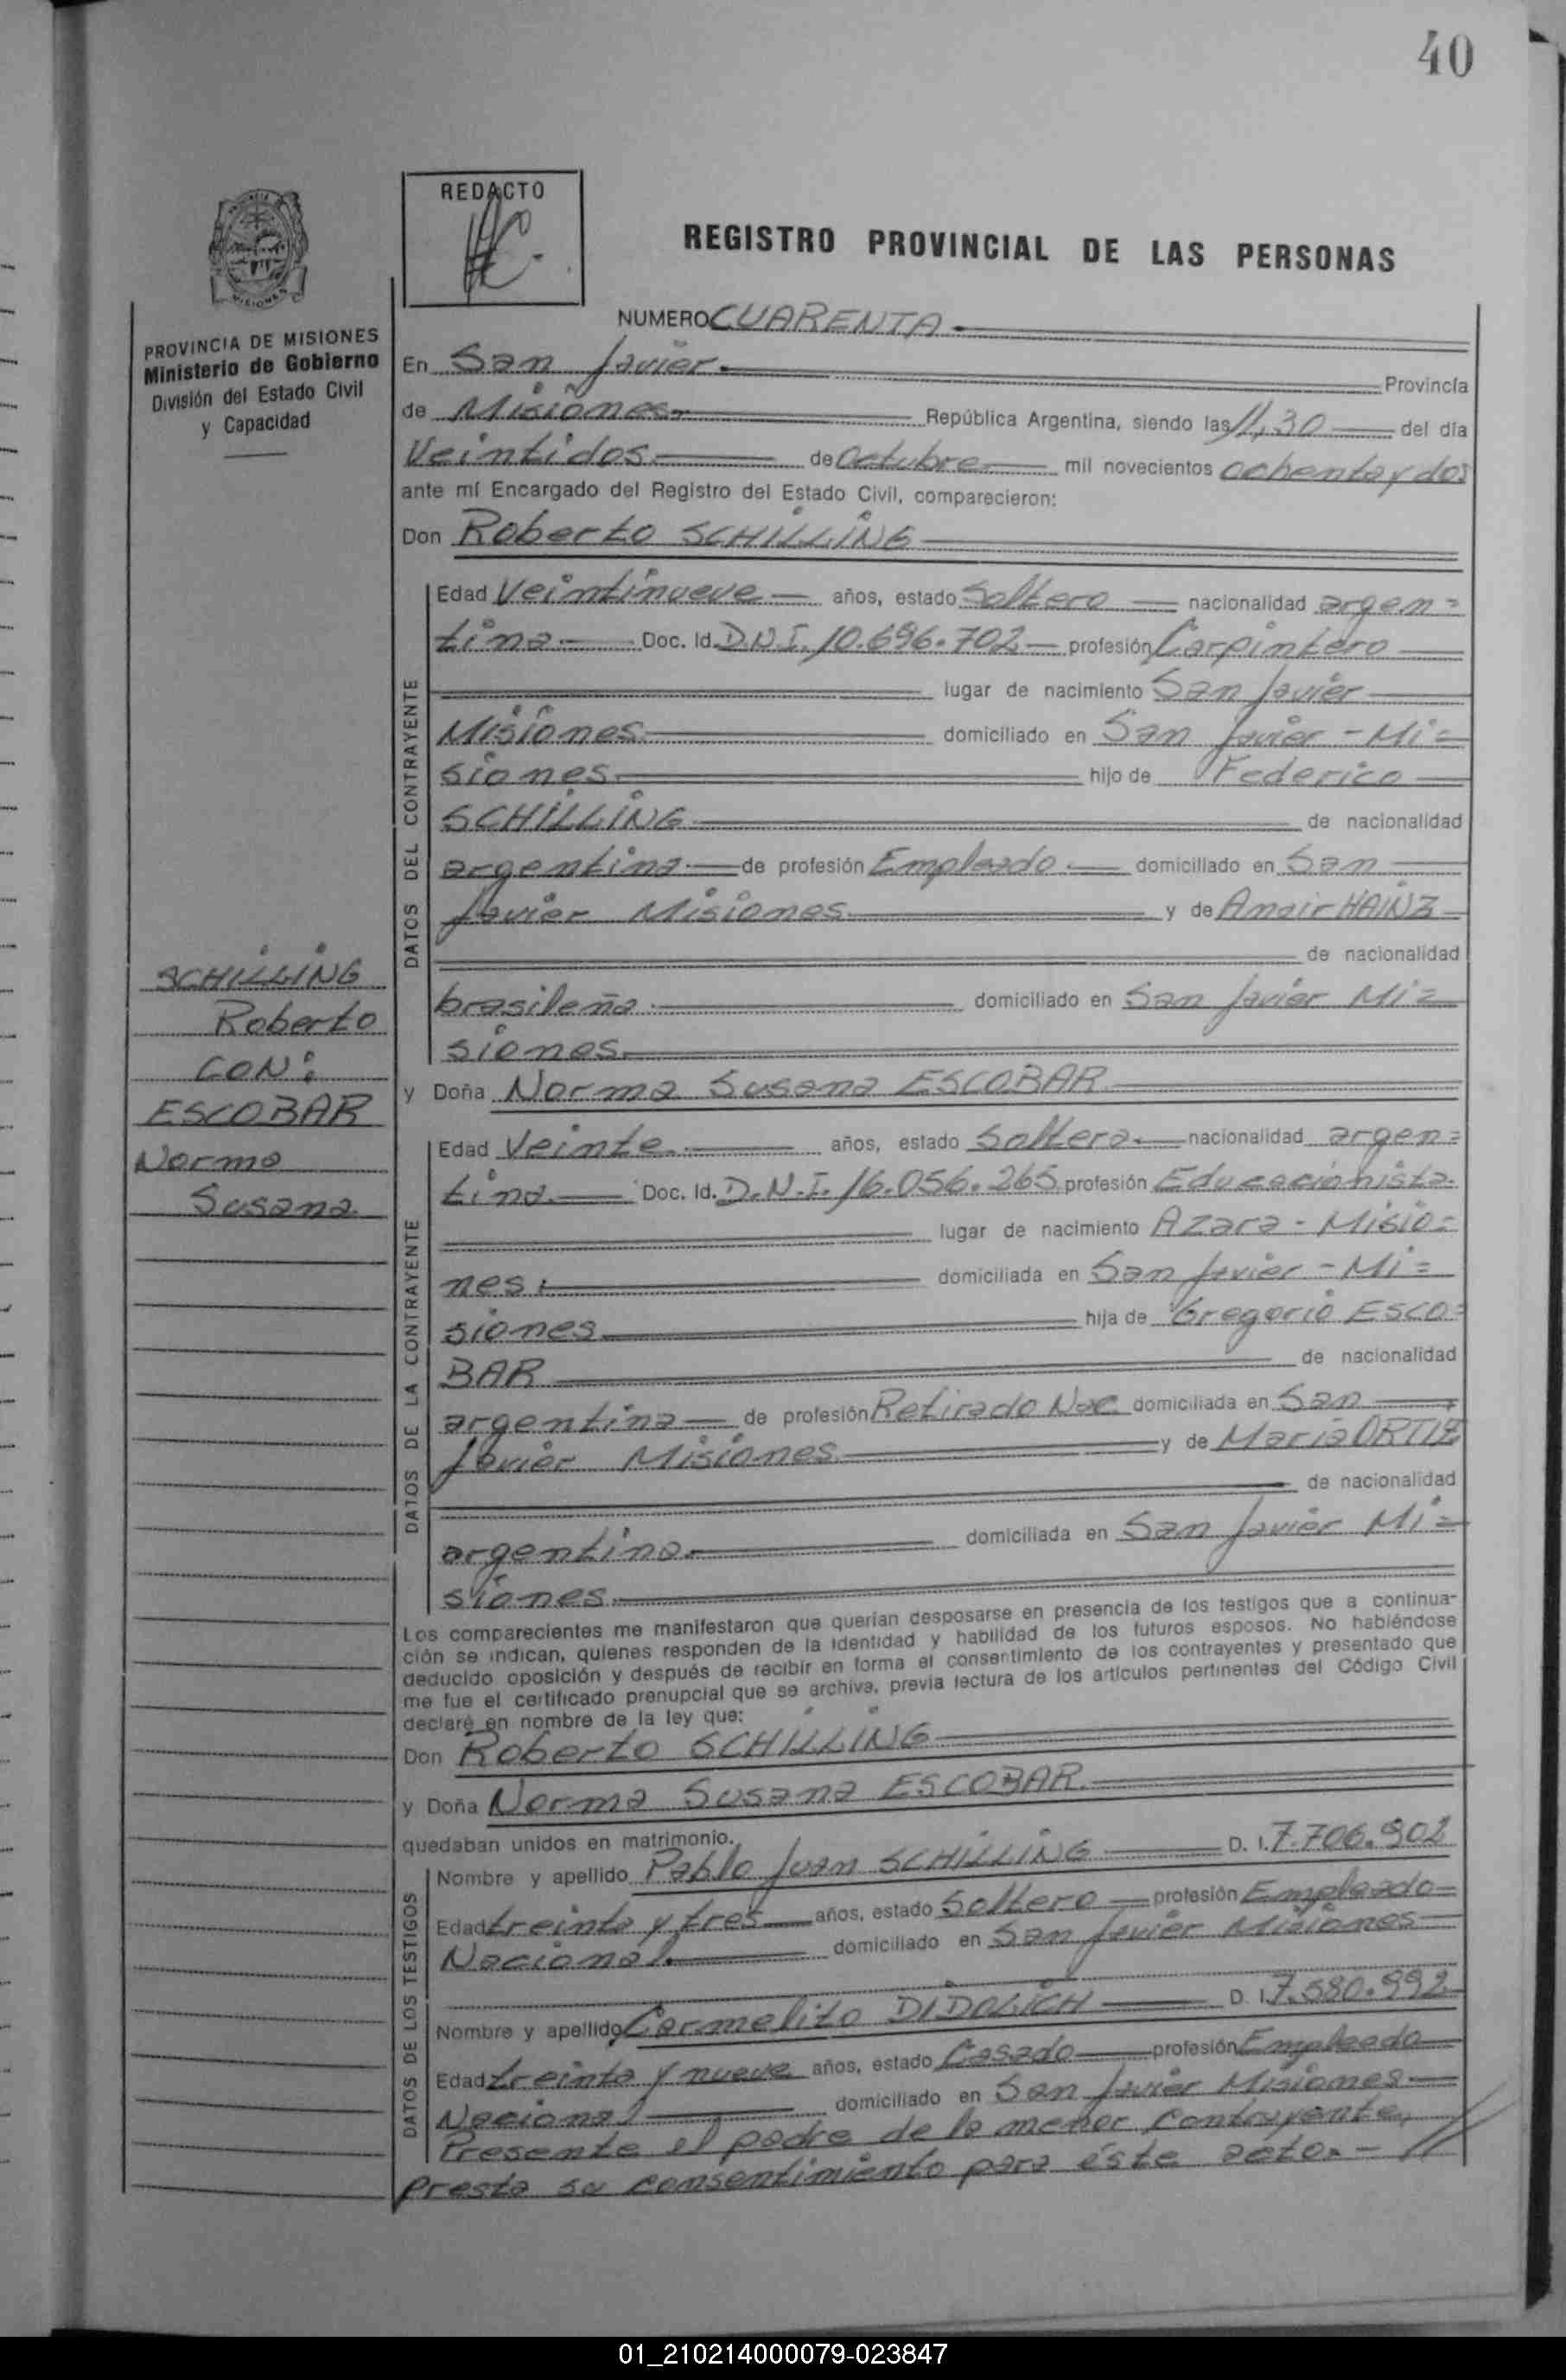 40
REDACTO
REGISTRO PROVINCIAL DE LAS PERSONAS
PROVINCIA DE MISIONES
Ministerio de Gobierno
División del Estado Civil
y Capacidad
SCHILLING
Roberto
CON:
ESCOBAR
Norma
Susana
NUMERO CUARENTA
En San Javier Provincia
de Misiones República Argentina, siendo las 11,30 del día
Veintidos de Octubre mil novecientos ochenta y dos
ante mí Encargado del Registro del Estado Civil, comparecieron:
Don Roberto SCHILLING
DATOS DEL CONTRAYENTE
Edad Veintinueve años, estado Soltero nacionalidad argen=
tina Doc. Id. D.N.I. 10.696.702 profesión Carpintero
lugar de nacimiento San Javier
Misiones domiciliado en San Javier - Mi=
siones hijo de Federico
SCHILLING de nacionalidad
argentina de profesión Empleado domiciliado en San
Javier Misiones y de Anair HAINZ
de nacionalidad
brasileña domiciliado en San Javier Mi=
siones
y Doña Norma Susana ESCOBAR
DATOS DE LA CONTRAYENTE
Edad Veinte años, estado Soltera nacionalidad argen=
tina Doc. Id. D.N.I. 16.056.265 profesión Educacionista
lugar de nacimiento Azara - Misio=
nes domiciliada en San Javier - Mi=
siones hija de Gregorio ESCO=
BAR de nacionalidad
argentina de profesión Retirado Nac. domiciliada en San
Javier Misiones y de María ORTIZ
de nacionalidad
argentina domiciliada en San Javier Mi=
siones
Los comparecientes me manifestaron que querían desposarse en presencia de los testigos que a continua-
ción se indican, quienes responden de la identidad y habilidad de los futuros esposos. No habiéndose
deducido oposición y después de recibir en forma el consentimiento de los contrayentes y presentado que
me fue el certificado prenupcial que se archiva, previa lectura de los artículos pertinentes del Código Civil
declaré en nombre de la ley que:
Don Roberto SCHILLING
y Doña Norma Susana ESCOBAR
quedaban unidos en matrimonio.
DATOS DE LOS TESTIGOS
Nombre y apellido Pablo Juan SCHILLING D. I. 7.706.902
Edad treinta y tres años, estado Soltero profesión Empleado
Nacional domiciliado en San Javier Misiones
Nombre y apellido Carmelito DIDOLICH D. I. 7.580.992
Edad treinta y nueve años, estado Casado profesión Empleado
Nacional domiciliado en San Javier Misiones
Presente el padre de la menor contrayente,
presta su consentimiento para éste acto.-
01_210214000079-023847